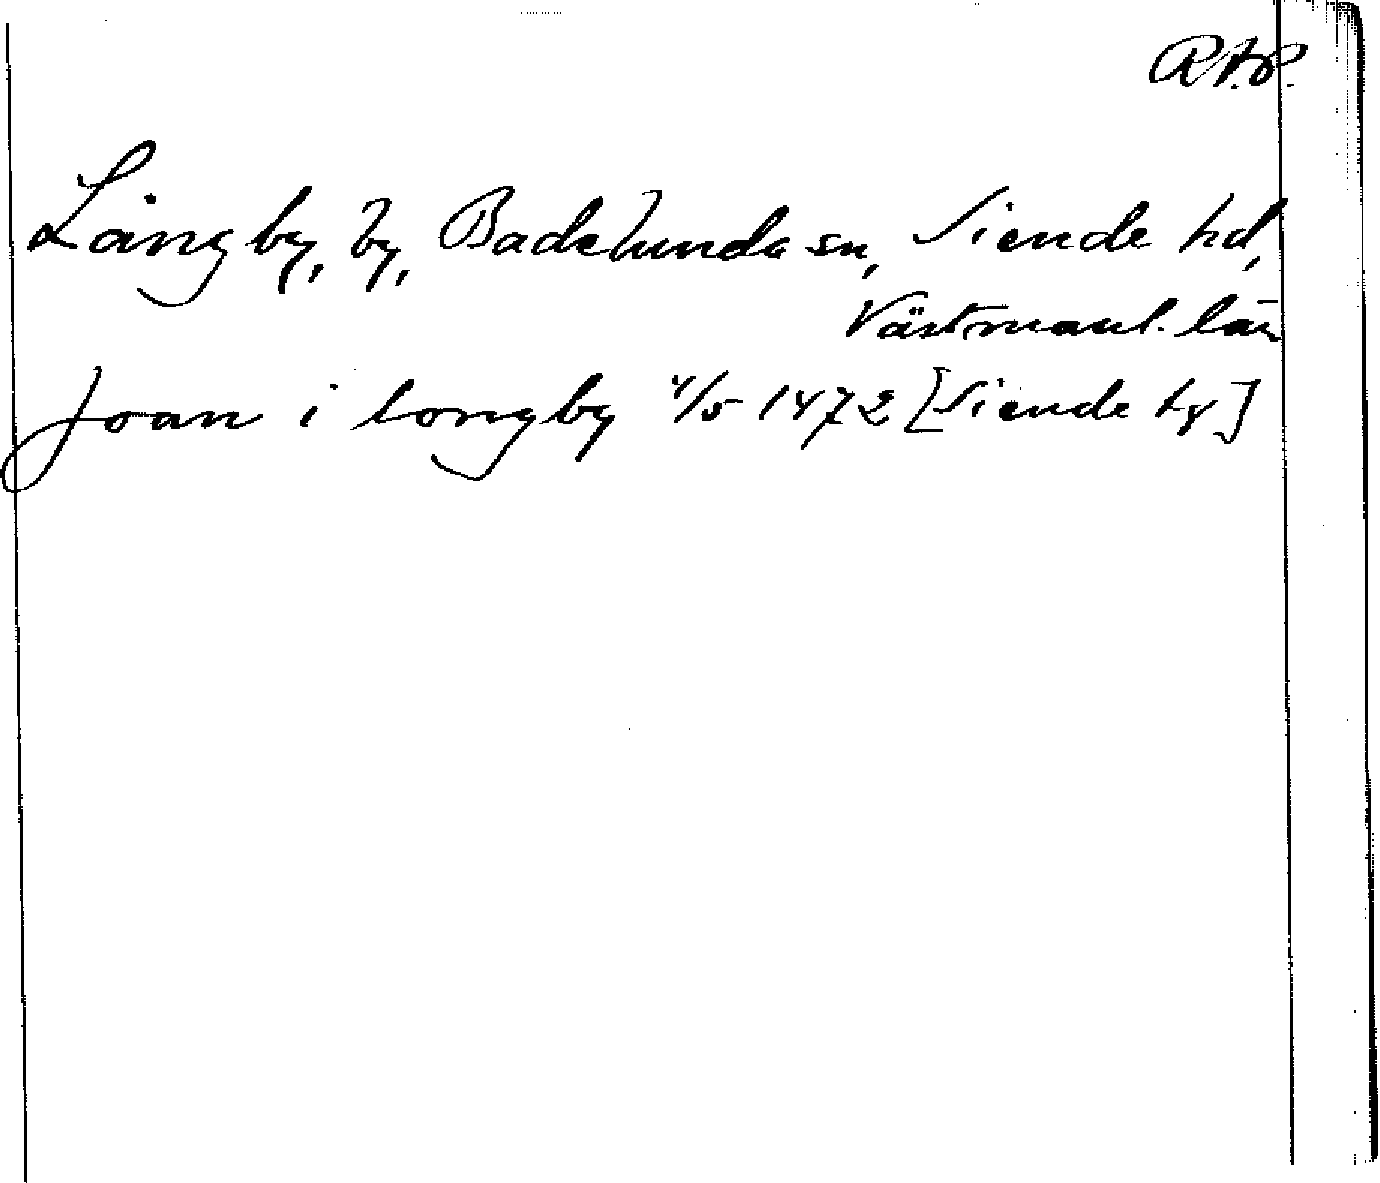 R.A.P.
Långby, by, Badelunda sn, Siende hd,
Västmanl. län
Joan i longby 4/5 1472 [Siende tg]